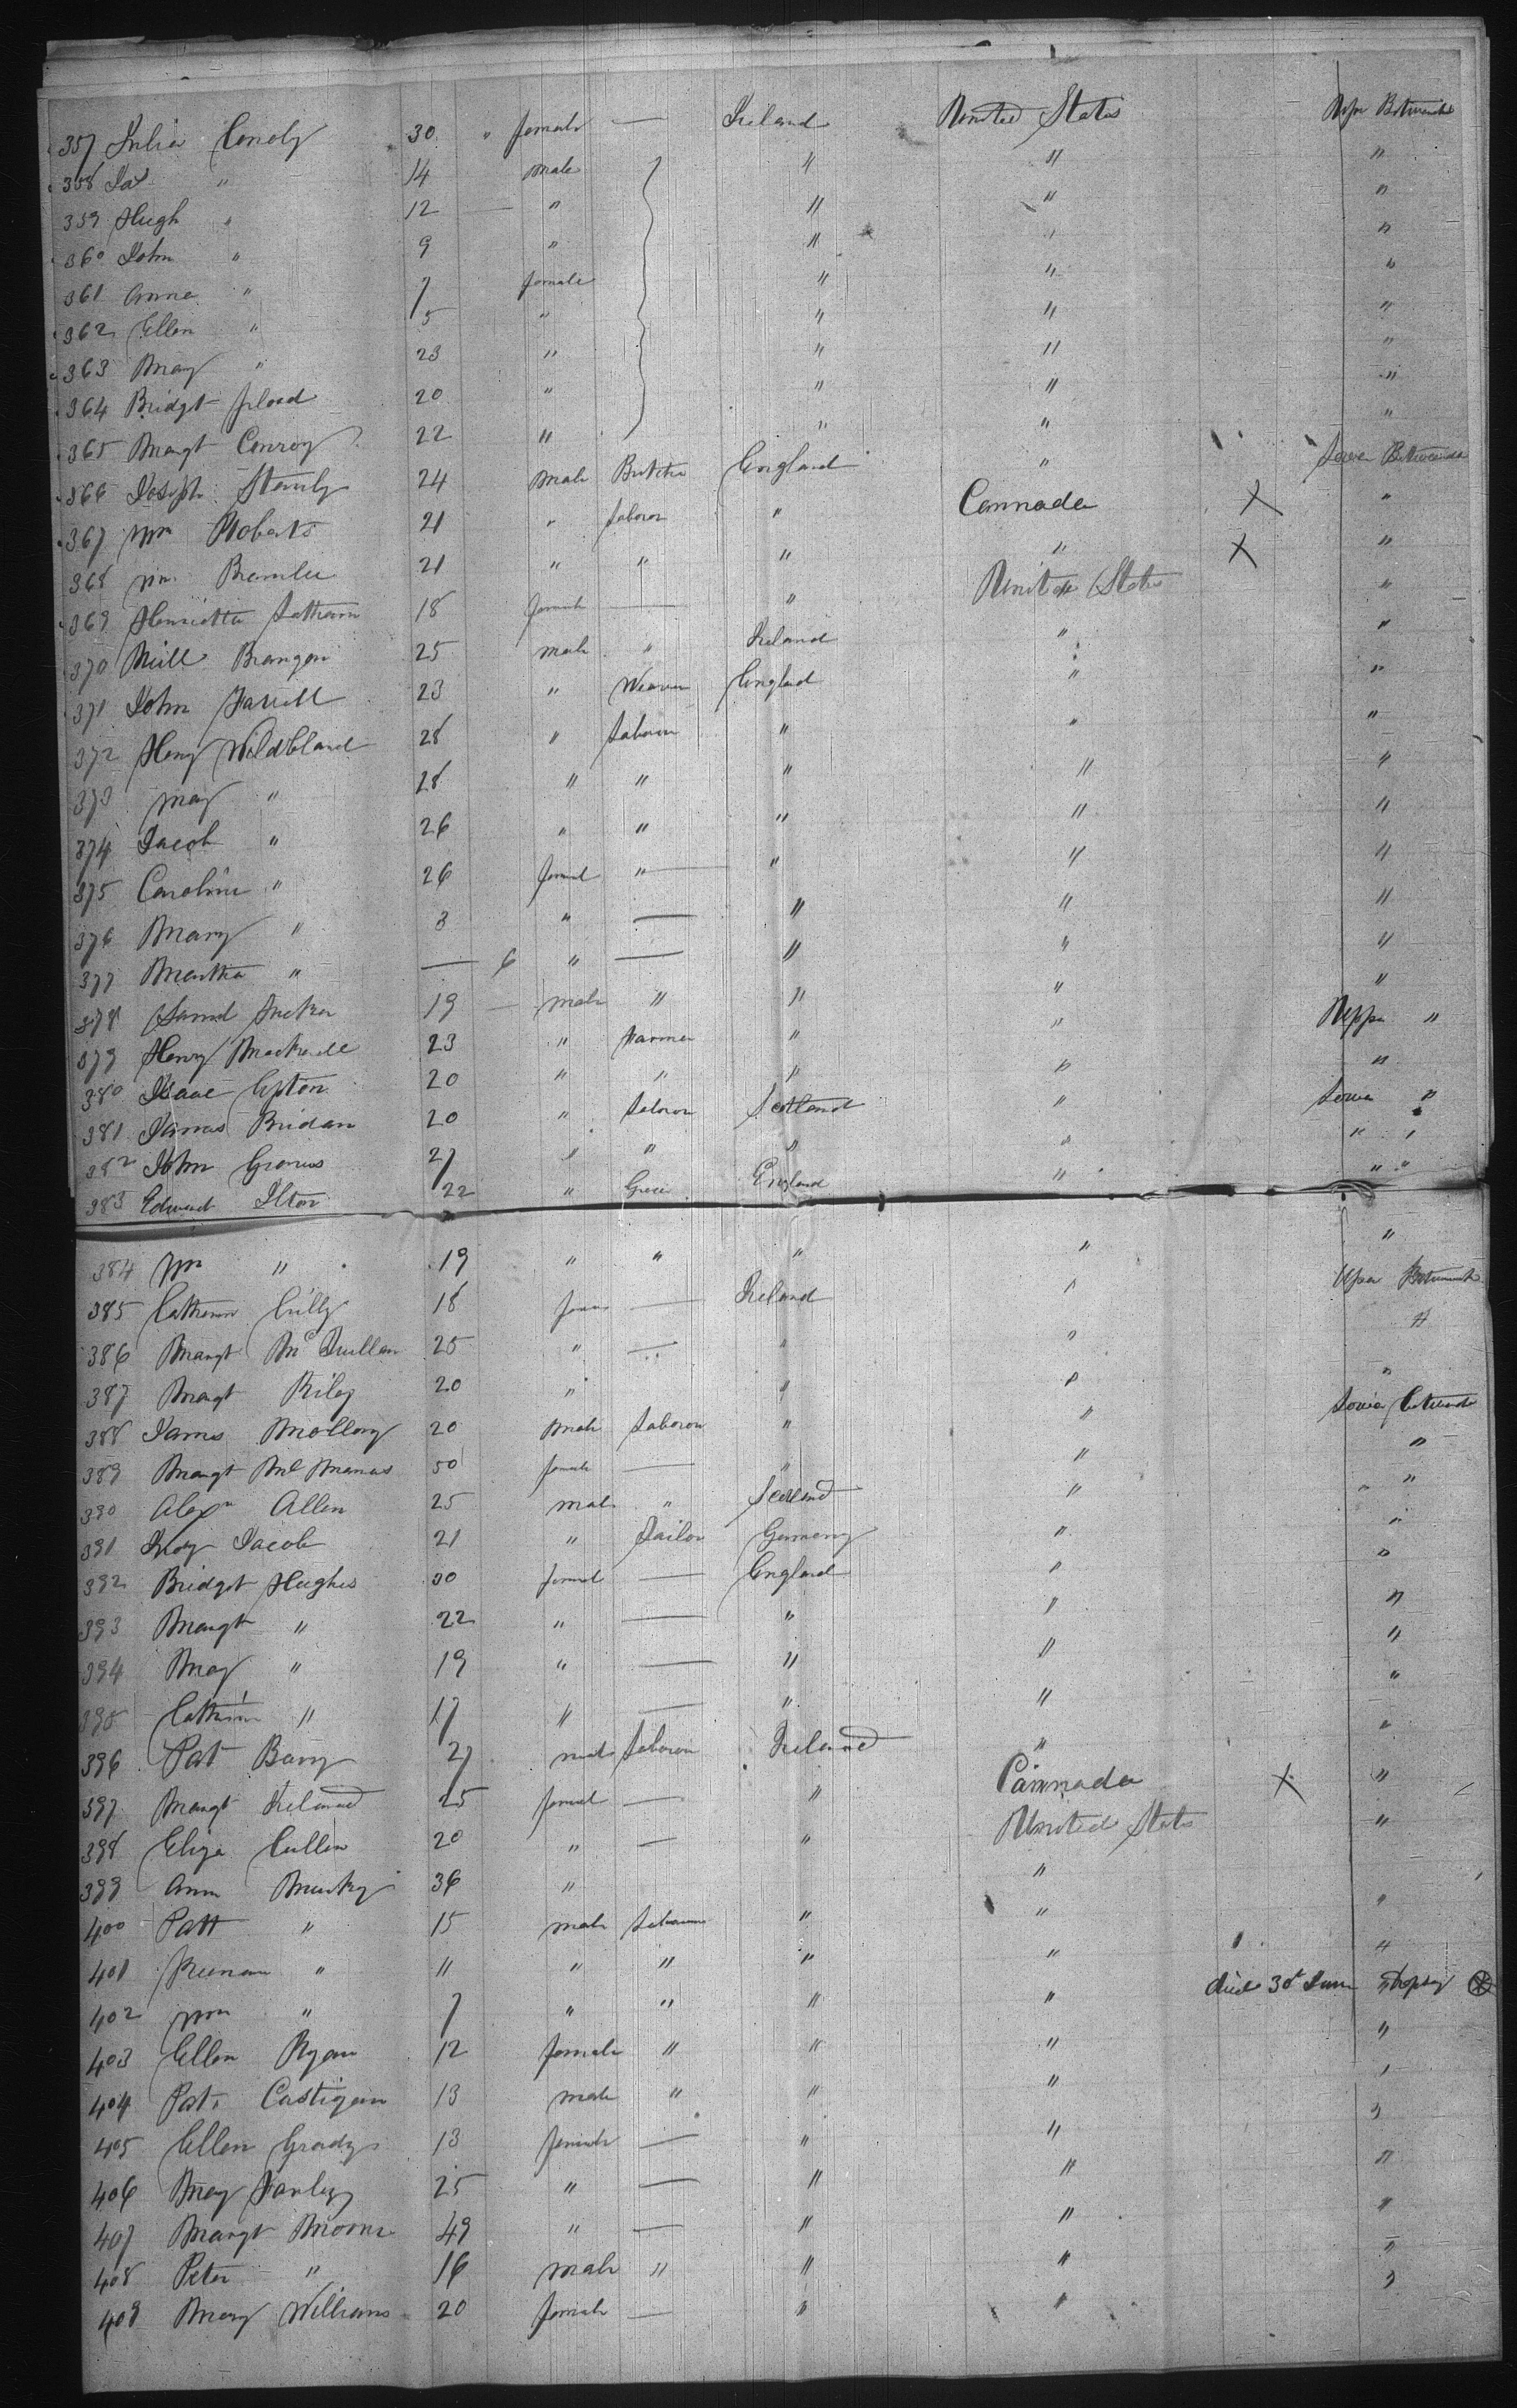 357 Julia Conoly 30 " female — Ireland United States Upr Betweenks
358 Pat " 14 male " " "
359 Hugh " 12 — " " " "
360 John " 9 " " " "
361 Anna " 7 female " " "
362 Ellen " 5 " " " "
363 Mary " 23 " " " "
364 Bridgt Flood 20 " " " "
365 Margt Conroy 22 " " " "
366 Joseph Stanly 24 male Butcher England " Lower Betweenks
367 Wm Roberts 21 " Laborer " Cannada X "
368 Wm Bramlee 21 " " " " X "
369 Henrietta Latham 18 female — " United States "
370 Neill Brangan 25 male " Ireland " "
371 John Farrell 23 " Weaver England " "
372 Heny Wildbland 28 " Laborer " " "
373 May " 28 " " " " "
374 Jacob " 26 " " " " "
375 Caroline " 26 femal " — " " "
376 Mary " 3 " — " " "
377 Martha " — 6 " — " " "
378 Saml Tucker 19 — male " " " "
379 Henry 23 " Farmer " " Upper "
380 Isaac Upton 20 " " " " "
381 James Bridan 20 " Laborer Scotland " Lower "
382 John Graves 27 " " " " " "
383 Edward Ilton 22 " Grocer England " " "
384 Wm " 19 " " " " "
385 Catherine Cully 18 female — Ireland " Upr Betweenks
386 Margt McQuillan 25 " — " " "
387 Margt Riley 20 " " " "
388 James Mollony 20 male Laborer " " Lower Betweenks
389 Margt McManus 50 female — " " "
390 Alexr Allen 25 male " Scotland " " "
391 Jacob 21 " Tailor Germany " "
392 Bridget Hughes 30 femal — England " "
393 Margt " 22 " — " " "
394 May " 19 " — " " "
395 Catherine " 17 " — " " "
396 Pat Barry 27 male Laborer Ireland " "
397 Margt Ireland 25 femal — " Cannada X "
398 Eliza Cullen 20 " — " United States "
399 Ann 36 " "
400 Patt " 15 male Laborer " " "
401 " 11 " " " " "
402 Wm " 7 " " " " died 30t June Dropsy
403 Ellen Ryan 12 female " " " "
404 Pat. Castigan 13 male " " " "
405 Ellen Grady 13 female — " " "
406 May Farley 25 " — " " "
407 Margt Moore 49 " — " " "
408 Peter " 16 male " " " "
409 Mary Williams 20 female — " " "